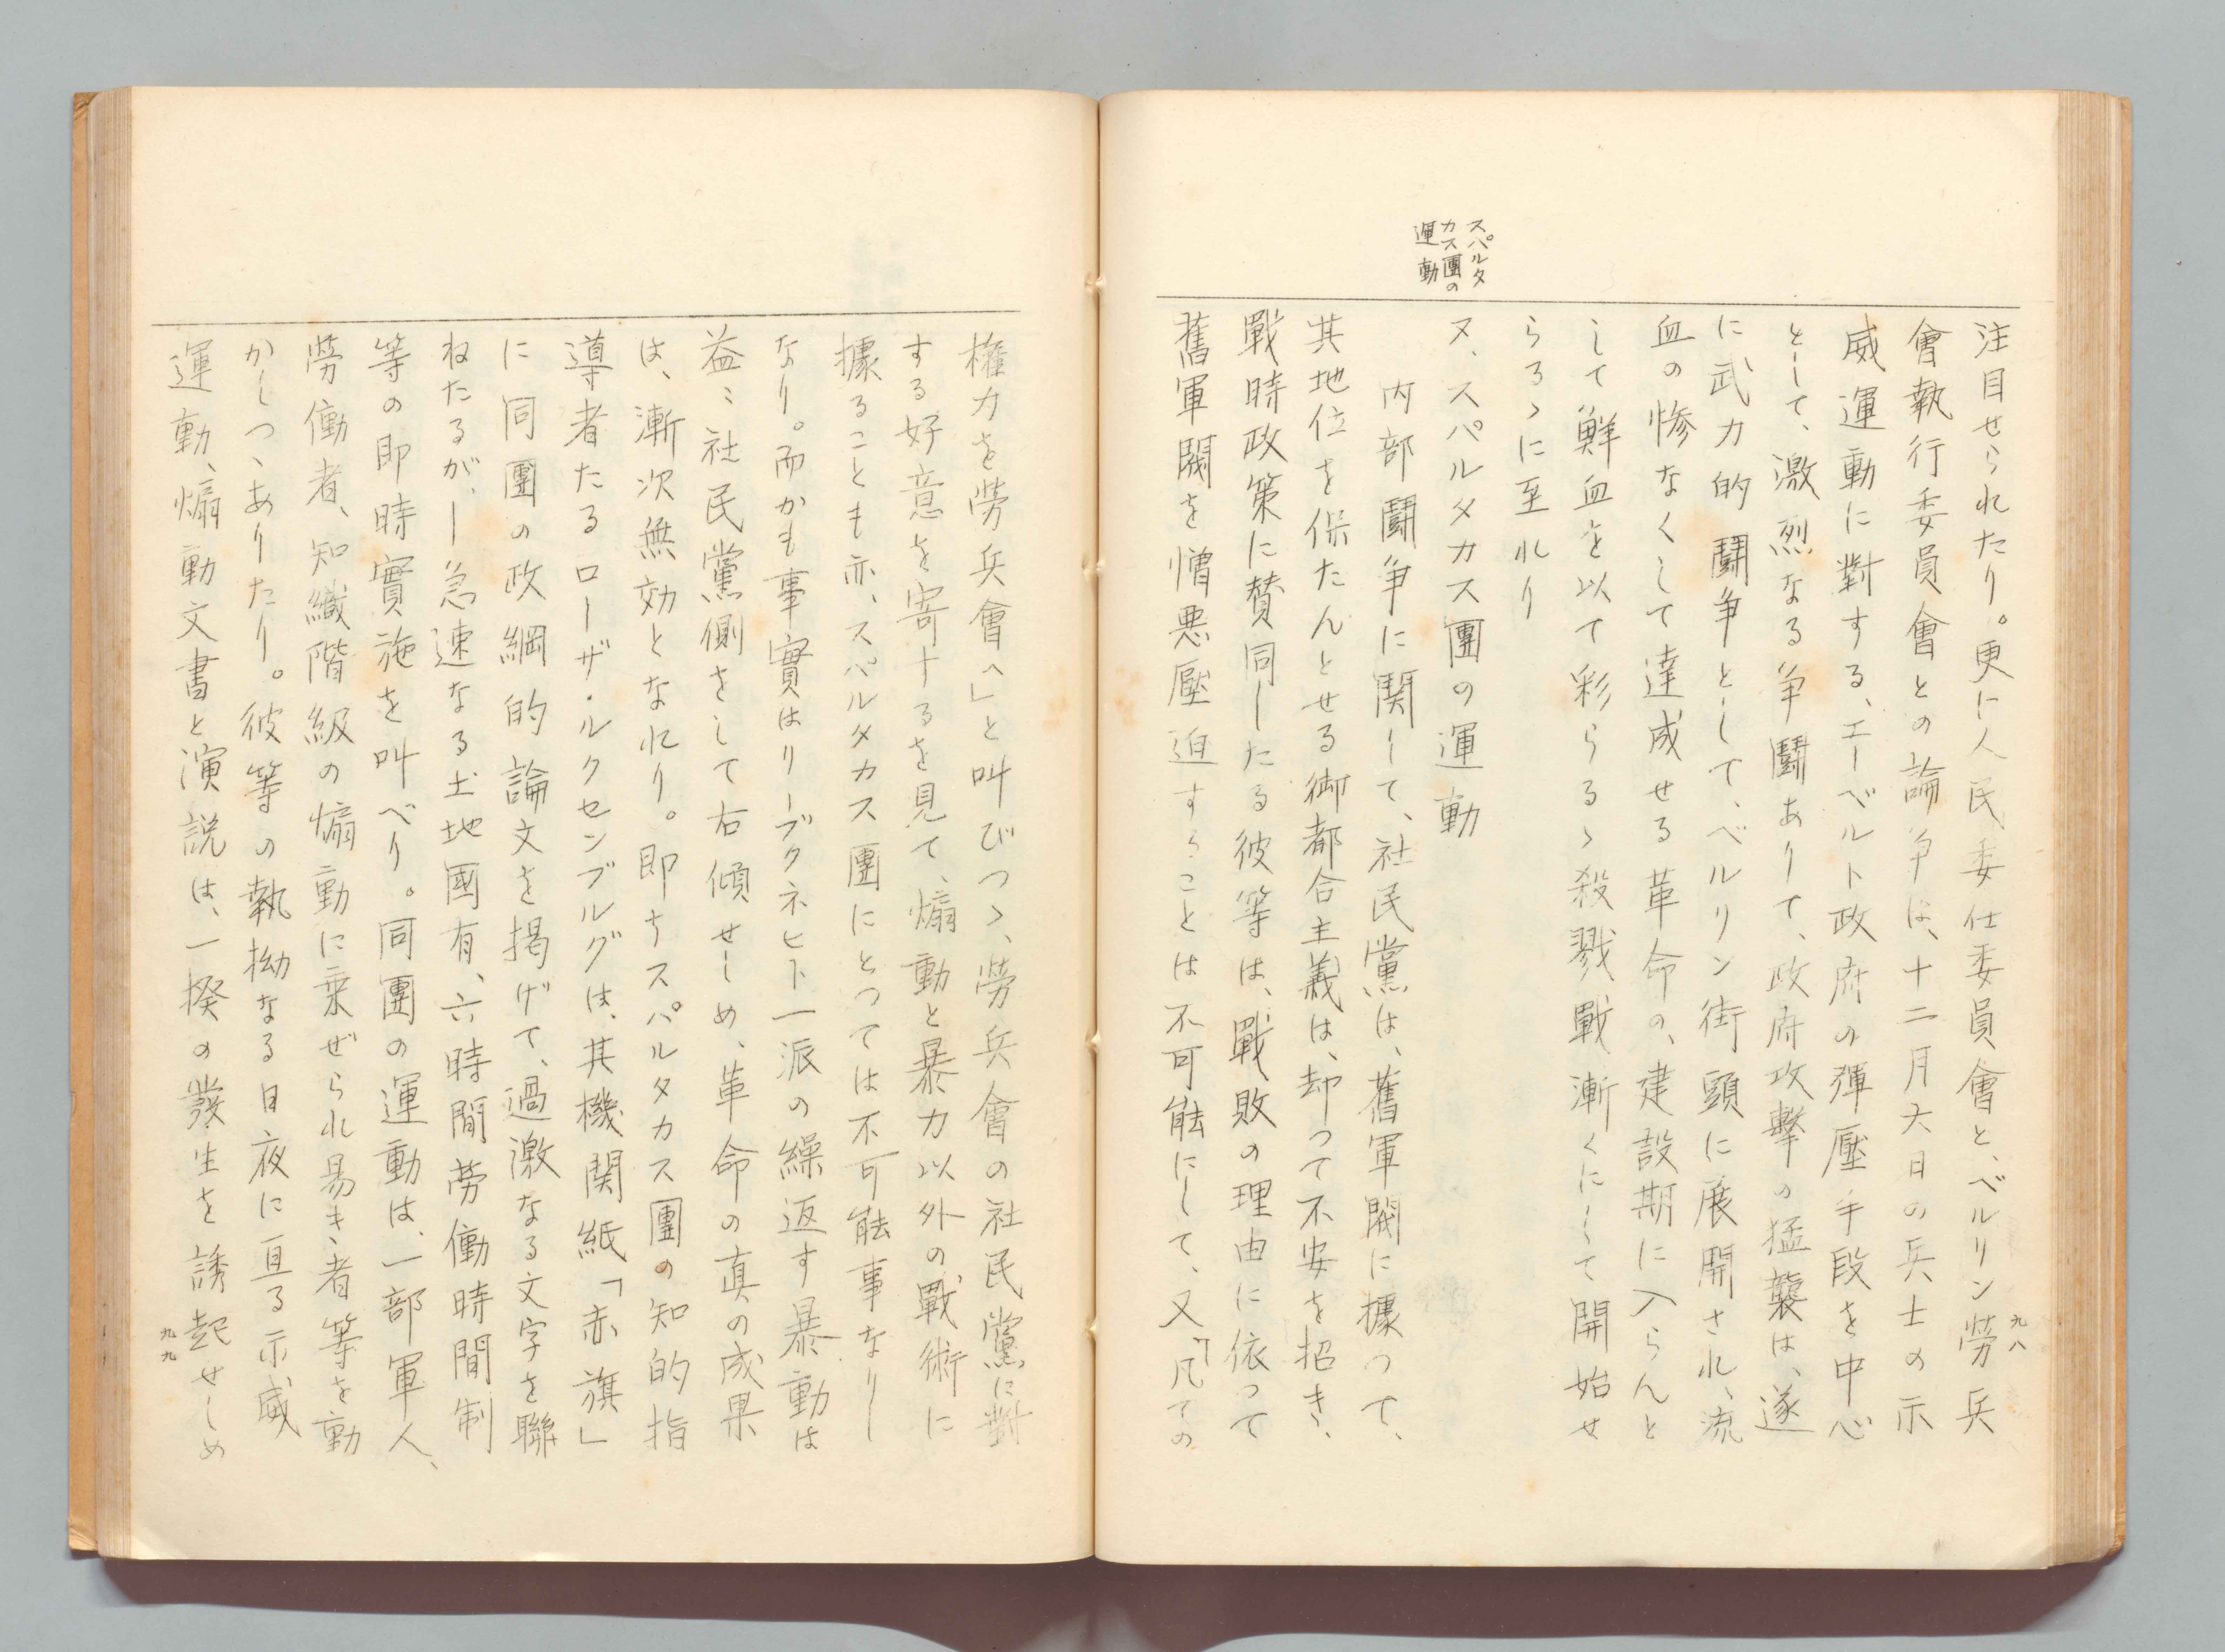 九八
注目せられたり。更に人民委仕委員會と、ベルリン勞兵
會執行委員會との論争は、十二月六日の兵士の示
威運動に對する、エーベルト政府の彈壓手段を中心
として、激烈なる争鬪ありて、政府攻撃の猛襲は、遂
に武力的鬪争として、ベルリン街頭に展開され、流
血の惨なくして達成せる革命の、建設期に入らんと
して鮮血を以て彩らるゝ殺戮戰漸くにして開始せ
らるゝに至れり
スパルタ
カス團の
運動
ヌ、スパルタカス團の運動
内部鬪争に関して、社民黨は、舊軍閥に據つて、
其地位を保たんとせる御都合主義は、却つて不安を招き、
戰時政策に賛同したる彼等は、戰敗の理由に依つて
舊軍閥を憎悪壓迫することは不可能にして、又「凡ての
權力を勞兵會へ」と叫びつゝ、勞兵會の社民黨に對
する好意を寄するを見て、煽動と暴力以外の戰術に
據ることも亦、スパルタカス團にとつては不可能事なりし
なり。而かも事實はリーブクネヒト一派の繰返す暴動は
益〻社民黨側をして右傾せしめ、革命の真の成果
は、漸次無効となれり。即ちスパルタカス團の知的指
導者たるローザ・ルクセンブルグは、其機関紙「赤旗」
に同團の政綱的論文を掲げて、過激なる文字を聯
ねたるが、―急速なる土地國有、六時間勞働時間制
等の即時實施を叫べり。同團の運動は、一部軍人、
勞働者、知織階級の煽動に乗ぜられ易き、者等を動
かしつゝありたり。彼等の執拗なる日夜に亘る示威
運動、煽動文書と演説は、一揆の發生を誘起せしめ
九九